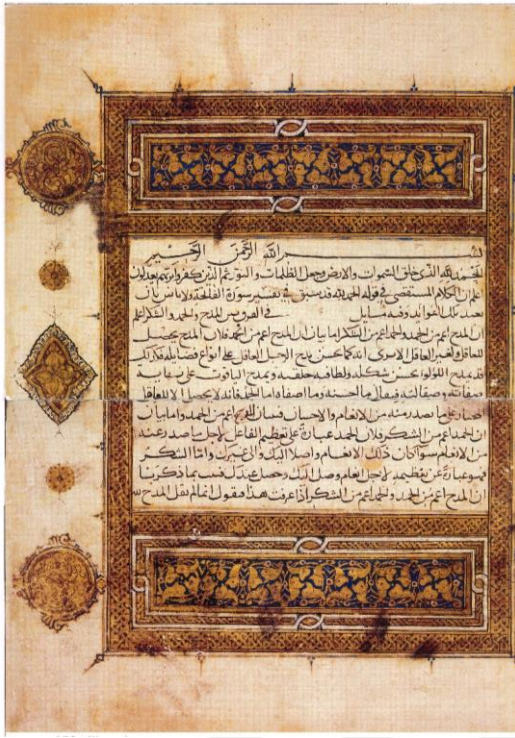 بسم الله الرحمن الرحيم
الحمد لله الذى خلق السموات والارض وجعل الظلمات والنور ثم الذين كفروا بربهم يعدلون
اعلم ان الكلام المستقصى في قوله الحمد لله قد سبق في تفسير سورة الفاتحة ولا باس بان
نعيد تلك الفوايد وفيه مسايل في الفرق بين المدح والحمد والشكر اعلم
ان المدح اعم من الحمد والحمد اعم من الشكر اما بيان ان المدح اعم من الحمد فلان المدح يحصل
للعاقل ولغير العاقل الا ترى انه كما يحسن مدح الرجل العاقل على انواع فضايله فكذلك
قد يمدح اللولو لحسن شكله ولطافة خلقته ويمدح الياقوت على نهاية
صفائه وصقالته فيقال ما احسنه وما اصفاه اما الحمد فانه لا يحصل الا للفاعل
المختار على ما يصدر منه من الانعام والاحسان فبان ان المدح اعم من الحمد واما بيان
ان الحمد اعم من الشكر فلان الحمد عبارة عن تعظيم الفاعل لاجل ما صدر عنه
من الانعام سوا كان ذلك الانعام واصلا اليك او الى غيرك واما الشكر
فهو عبارة عن تعظيمه لاجل انعام وصل اليك وحصل عندك فثبت بما ذكرنا
ان المدح اعم من الحمد والحمد اعم من الشكر اذا عرفت هذا فنقول انما لم يقل المدح لله